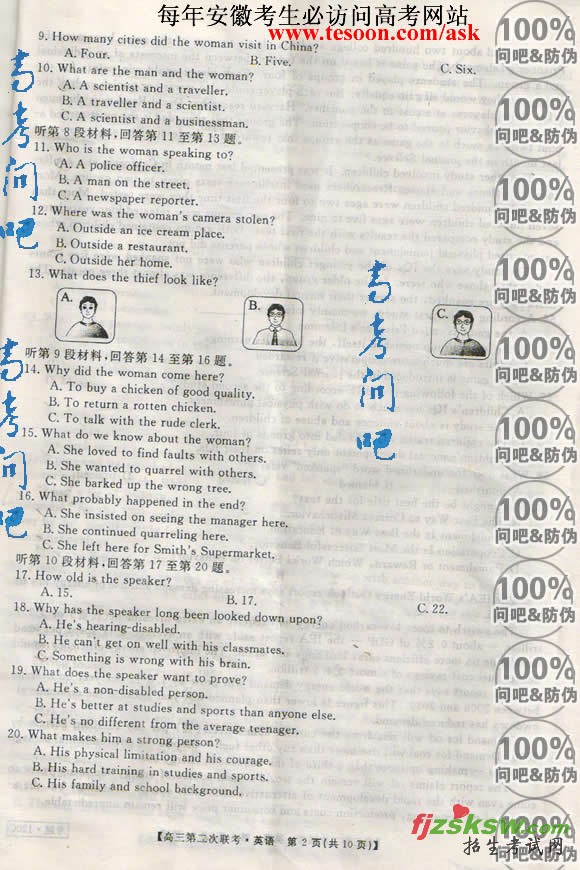 每年安徽考生必访问高考网站
www.tesoon.com/ask
9. How many cities did the woman visit in China?
A. Four.
B. Five.
C. Six.
10. What are the man and the woman?
A. A scientist and a traveller.
B. A traveller and a scientist.
C. A scientist and a businessman.
听第 8 段材料,回答第 11 至第 13 题。
11. Who is the woman speaking to?
A. A police officer.
B. A man on the street.
C. A newspaper reporter.
12. Where was the woman's camera stolen?
A. Outside an ice cream place.
B. Outside a restaurant.
C. Outside her home.
13. What does the thief look like?
A.
B.
C.
听第 9 段材料,回答第 14 至第 16 题。
14. Why did the woman come here?
A. To buy a chicken of good quality.
B. To return a rotten chicken.
C. To talk with the rude clerk.
15. What do we know about the woman?
A. She loved to find faults with others.
B. She wanted to quarrel with others.
C. She barked up the wrong tree.
16. What probably happened in the end?
A. She insisted on seeing the manager here.
B. She continued quarreling here.
C. She left here for Smith's Supermarket.
听第 10 段材料,回答第 17 至第 20 题。
17. How old is the speaker?
A. 15.
B. 17.
C. 22.
18. Why has the speaker long been looked down upon?
A. He's hearing-disabled.
B. He can't get on well with his classmates.
C. Something is wrong with his brain.
19. What does the speaker want to prove?
A. He's a non-disabled person.
B. He's better at studies and sports than anyone else.
C. He's no different from the average teenager.
20. What makes him a strong person?
A. His physical limitation and his courage.
B. His hard training in studies and sports.
C. His family and school background.
【高三第二次联考·英语 第 2 页(共 10 页)】
高考问吧
高考问吧
高考问吧
100%
问吧&防伪
100%
问吧&防伪
100%
问吧&防伪
100%
问吧&防伪
100%
问吧&防伪
100%
问吧&防伪
100%
问吧&防伪
100%
问吧&防伪
100%
问吧&防伪
100%
问吧&防伪
100%
fjzsksw.com
招生考试网